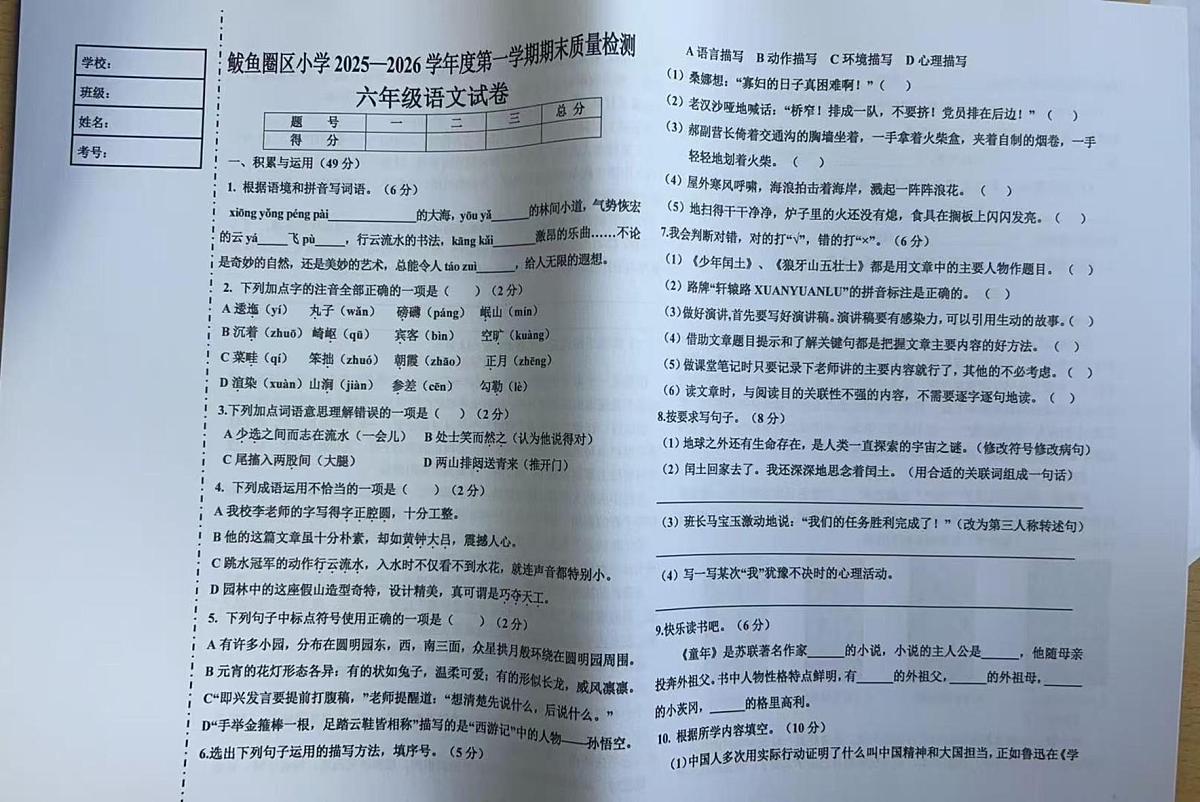 学校：
班级：
姓名：
考号：
鲅鱼圈区小学 2025—2026 学年度第一学期期末质量检测
六年级语文试卷
题 号 一 二 三 总 分
得 分
一、积累与运用（49 分）
1. 根据语境和拼音写词语。（6 分）
xiōng yǒng péng pài______的大海，yōu yǎ______的林间小道，气势恢宏
的云 yá____飞 pù____，行云流水的书法，kāng kǎi______激昂的乐曲……不论
是奇妙的自然，还是美妙的艺术，总能令人 táo zuì______，给人无限的遐想。
2. 下列加点字的注音全部正确的一项是（ ）（2 分）
A 逶迤（yí） 丸子（wǎn） 磅礴（páng） 岷山（mín）
B 沉着（zhuō）崎岖（qū） 宾客（bìn） 空旷（kuàng）
C 菜畦（qí） 笨拙（zhuó） 朝霞（zhāo） 正月（zhēng）
D 渲染（xuàn）山涧（jiàn） 参差（cēn） 勾勒（lè）
3.下列加点词语意思理解错误的一项是（ ）（2 分）
A 少选之间而志在流水（一会儿） B 处士笑而然之（认为他说得对）
C 尾搐入两股间（大腿） D 两山排闼送青来（推开门）
4. 下列成语运用不恰当的一项是（ ）（2 分）
A 我校李老师的字写得字正腔圆，十分工整。
B 他的这篇文章虽十分朴素，却如黄钟大吕，震撼人心。
C 跳水冠军的动作行云流水，入水时不仅看不到水花，就连声音都特别小。
D 园林中的这座假山造型奇特，设计精美，真可谓是巧夺天工。
5. 下列句子中标点符号使用正确的一项是（ ）（2 分）
A 有许多小园，分布在圆明园东，西，南三面，众星拱月般环绕在圆明园周围。
B 元宵的花灯形态各异：有的状如兔子，温柔可爱；有的形似长龙，威风凛凛。
C“即兴发言要提前打腹稿，”老师提醒道：“想清楚先说什么，后说什么。”
D“手举金箍棒一根，足踏云鞋皆相称”描写的是“西游记”中的人物——孙悟空。
6.选出下列句子运用的描写方法，填序号。（5 分）
A 语言描写 B 动作描写 C 环境描写 D 心理描写
（1）桑娜想：“寡妇的日子真困难啊！”（ ）
（2）老汉沙哑地喊话：“桥窄！排成一队，不要挤！党员排在后边！”（ ）
（3）郝副营长倚着交通沟的胸墙坐着，一手拿着火柴盒，夹着自制的烟卷，一手
轻轻地划着火柴。（ ）
（4）屋外寒风呼啸，海浪拍击着海岸，溅起一阵阵浪花。（ ）
（5）地扫得干干净净，炉子里的火还没有熄，食具在搁板上闪闪发亮。（ ）
7.我会判断对错，对的打“√”，错的打“×”。（6 分）
（1）《少年闰土》、《狼牙山五壮士》都是用文章中的主要人物作题目。（ ）
（2）路牌“轩辕路 XUANYUANLU”的拼音标注是正确的。（ ）
（3）做好演讲,首先要写好演讲稿。演讲稿要有感染力,可以引用生动的故事。（ ）
（4）借助文章题目提示和了解关键句都是把握文章主要内容的好方法。（ ）
（5）做课堂笔记时只要记录下老师讲的主要内容就行了，其他的不必考虑。（ ）
（6）读文章时，与阅读目的关联性不强的内容，不需要逐字逐句地读。（ ）
8.按要求写句子。（8 分）
（1）地球之外还有生命存在，是人类一直探索的宇宙之谜。（修改符号修改病句）
（2）闰土回家去了。我还深深地思念着闰土。（用合适的关联词组成一句话）
（3）班长马宝玉激动地说：“我们的任务胜利完成了！”（改为第三人称转述句）
（4）写一写某次“我”犹豫不决时的心理活动。
9.快乐读书吧。（6 分）
《童年》是苏联著名作家_____的小说，小说的主人公是_____，他随母亲
投奔外祖父。书中人物性格特点鲜明，有_____的外祖父，_____的外祖母，_____
的小茨冈，_____的格里高利。
10. 根据所学内容填空。（10 分）
（1）中国人多次用实际行动证明了什么叫中国精神和大国担当，正如鲁迅在《学